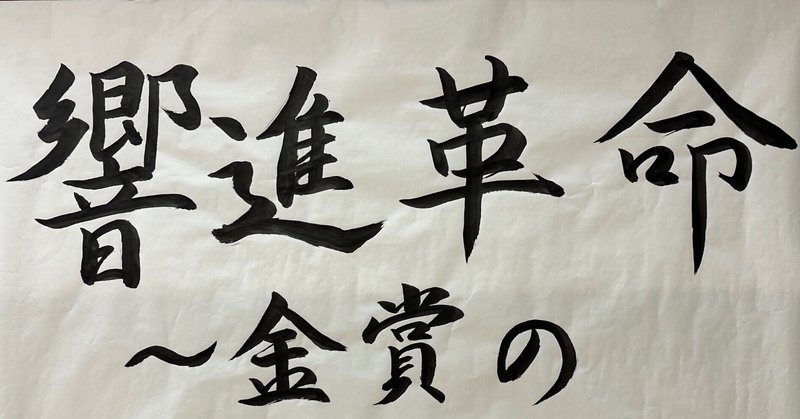 響進革命
～金賞の